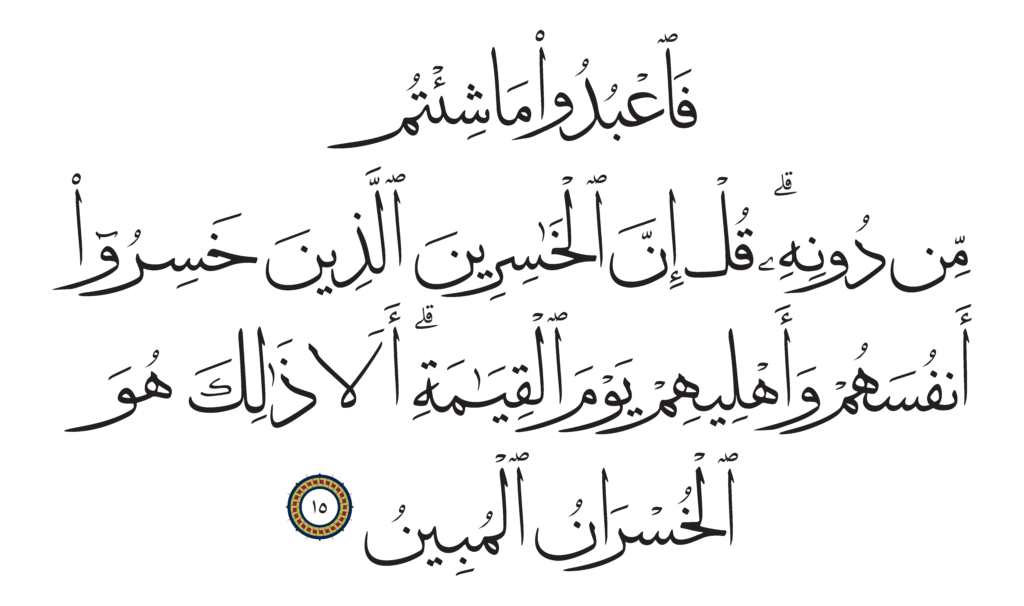 فَٱعْبُدُوا۟ مَا شِئْتُم
مِّن دُونِهِۦ ۗ قُلْ إِنَّ ٱلْخَـٰسِرِينَ ٱلَّذِينَ خَسِرُوٓا۟
أَنفُسَهُمْ وَأَهْلِيهِمْ يَوْمَ ٱلْقِيَـٰمَةِ ۗ أَلَا ذَٰلِكَ هُوَ
ٱلْخُسْرَانُ ٱلْمُبِينُ ١٥